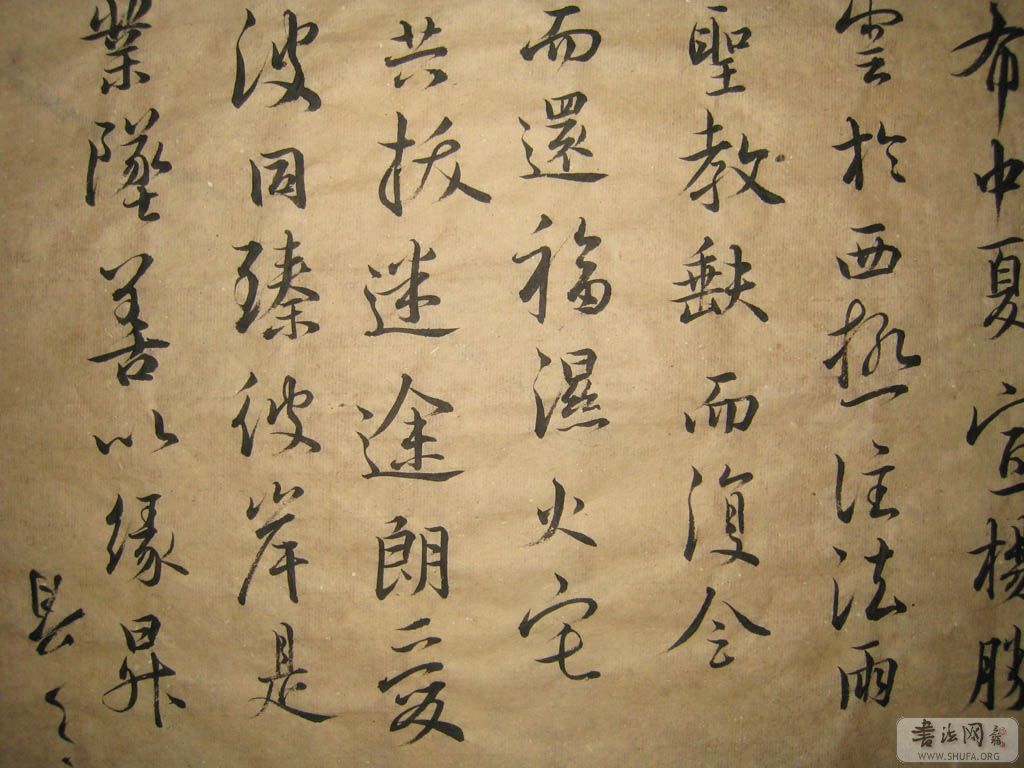 布中夏宣揚勝
雲於西極注法雨
聖教缺而復全
而還福濕火宅
共拔迷途朗愛
波同臻彼岸是
業墜善以緣昇
書法网
WWW.SHUFA.ORG